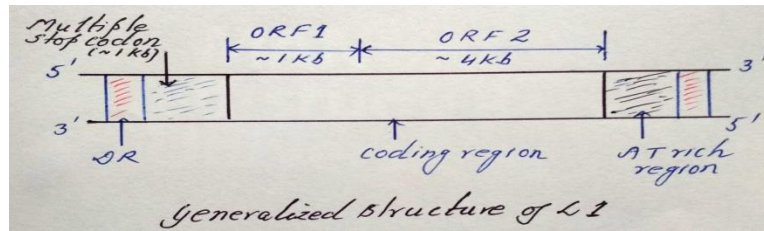 Multiple
Stop codon
(~1 Kb)
ORF1
ORF 2
~1Kb
~4Kb
5'
3'
3'
5'
DR
Coding region
AT rich
region
Generalized Structure of L1